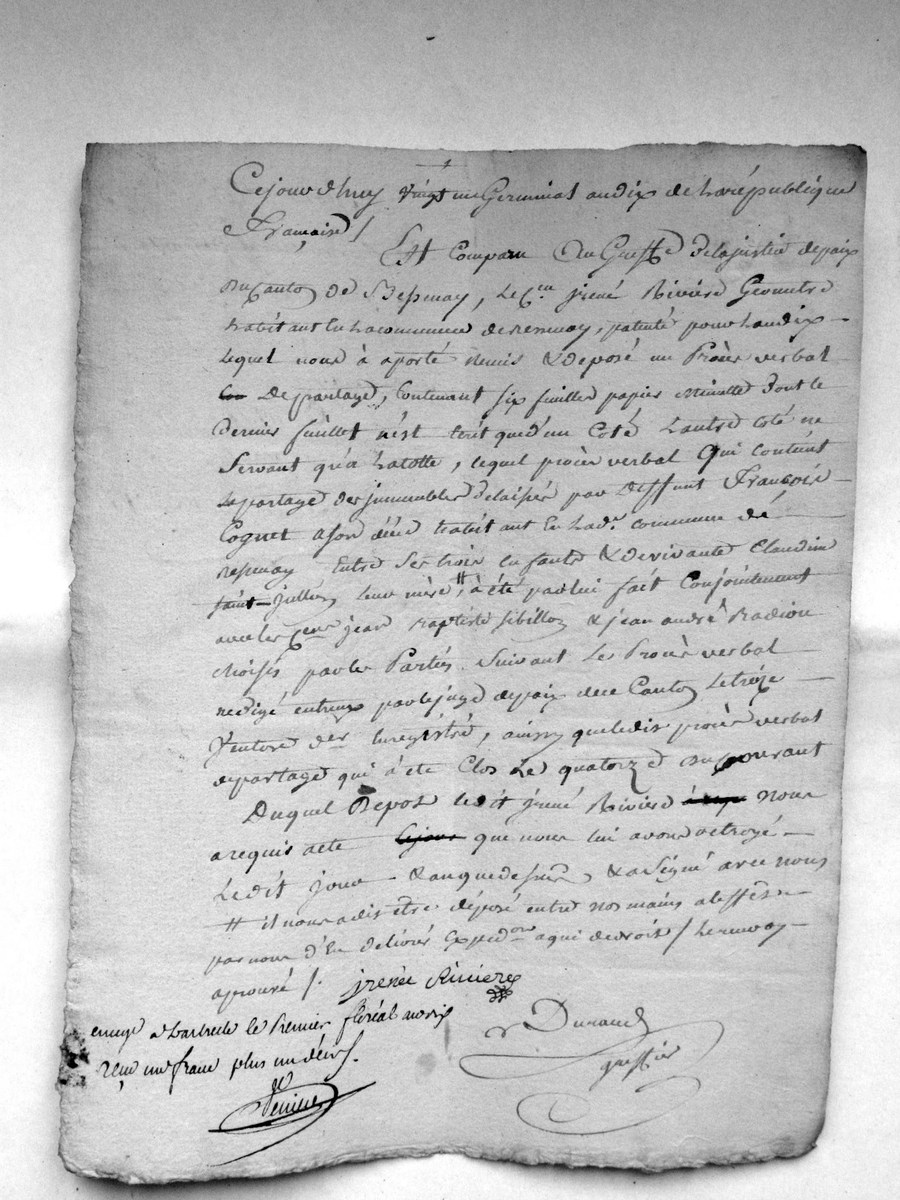 Cejourd'huy vingt un Germinal an dix de la république
Française /
Est Comparu Au Greffe de la justice de paix
du Canton de Bessenay, le Cen jrené Rivière Géometre
habitant en la commune de Bessenay, patenté pour l'an dix
lequel nous à aporté remis & deposé un Procès verbal
De partage, Contenant six feuilles papier Minutte dont le
dernier feuillet n'est écrit que d'un Coté L'autre coté ne
Servant qu'a la cotte, lequel procès verbal Qui contient
le partage des jmmeubles delaissés par deffunt François
Cognet a son décéd habitant En lade commune de
Bessenay Entre Ses trois enfants & devivante Claudine
saint-jullien leur mère # à été par lui fait Conjointement
avec les Cens jean Baptiste Sibillon & jean andré Radion
choisis par les Parties Suivant le Procès verbal
redigé entreux par le juge de paix de ce Canton le treize
Ventose der Enregistré, ainsy que ledit procès verbal
de partage qui à été Clos Le quatorze du courant
Duquel Depos ledit jrené Rivière nous
a requis acte que nous lui avons octroyé
Ledit jour & an que dessus, & a Signé avec nous
# il nous a dis être déposé entre nos mains a l'effet
par nous d'En delivrer Expedon a qui de droit / Le renvoy
aprouvé /. jrenée Rivière
enregé a Larbresle le Premier floréal an dix
reçu un franc plus un décime.
Durand
greffier